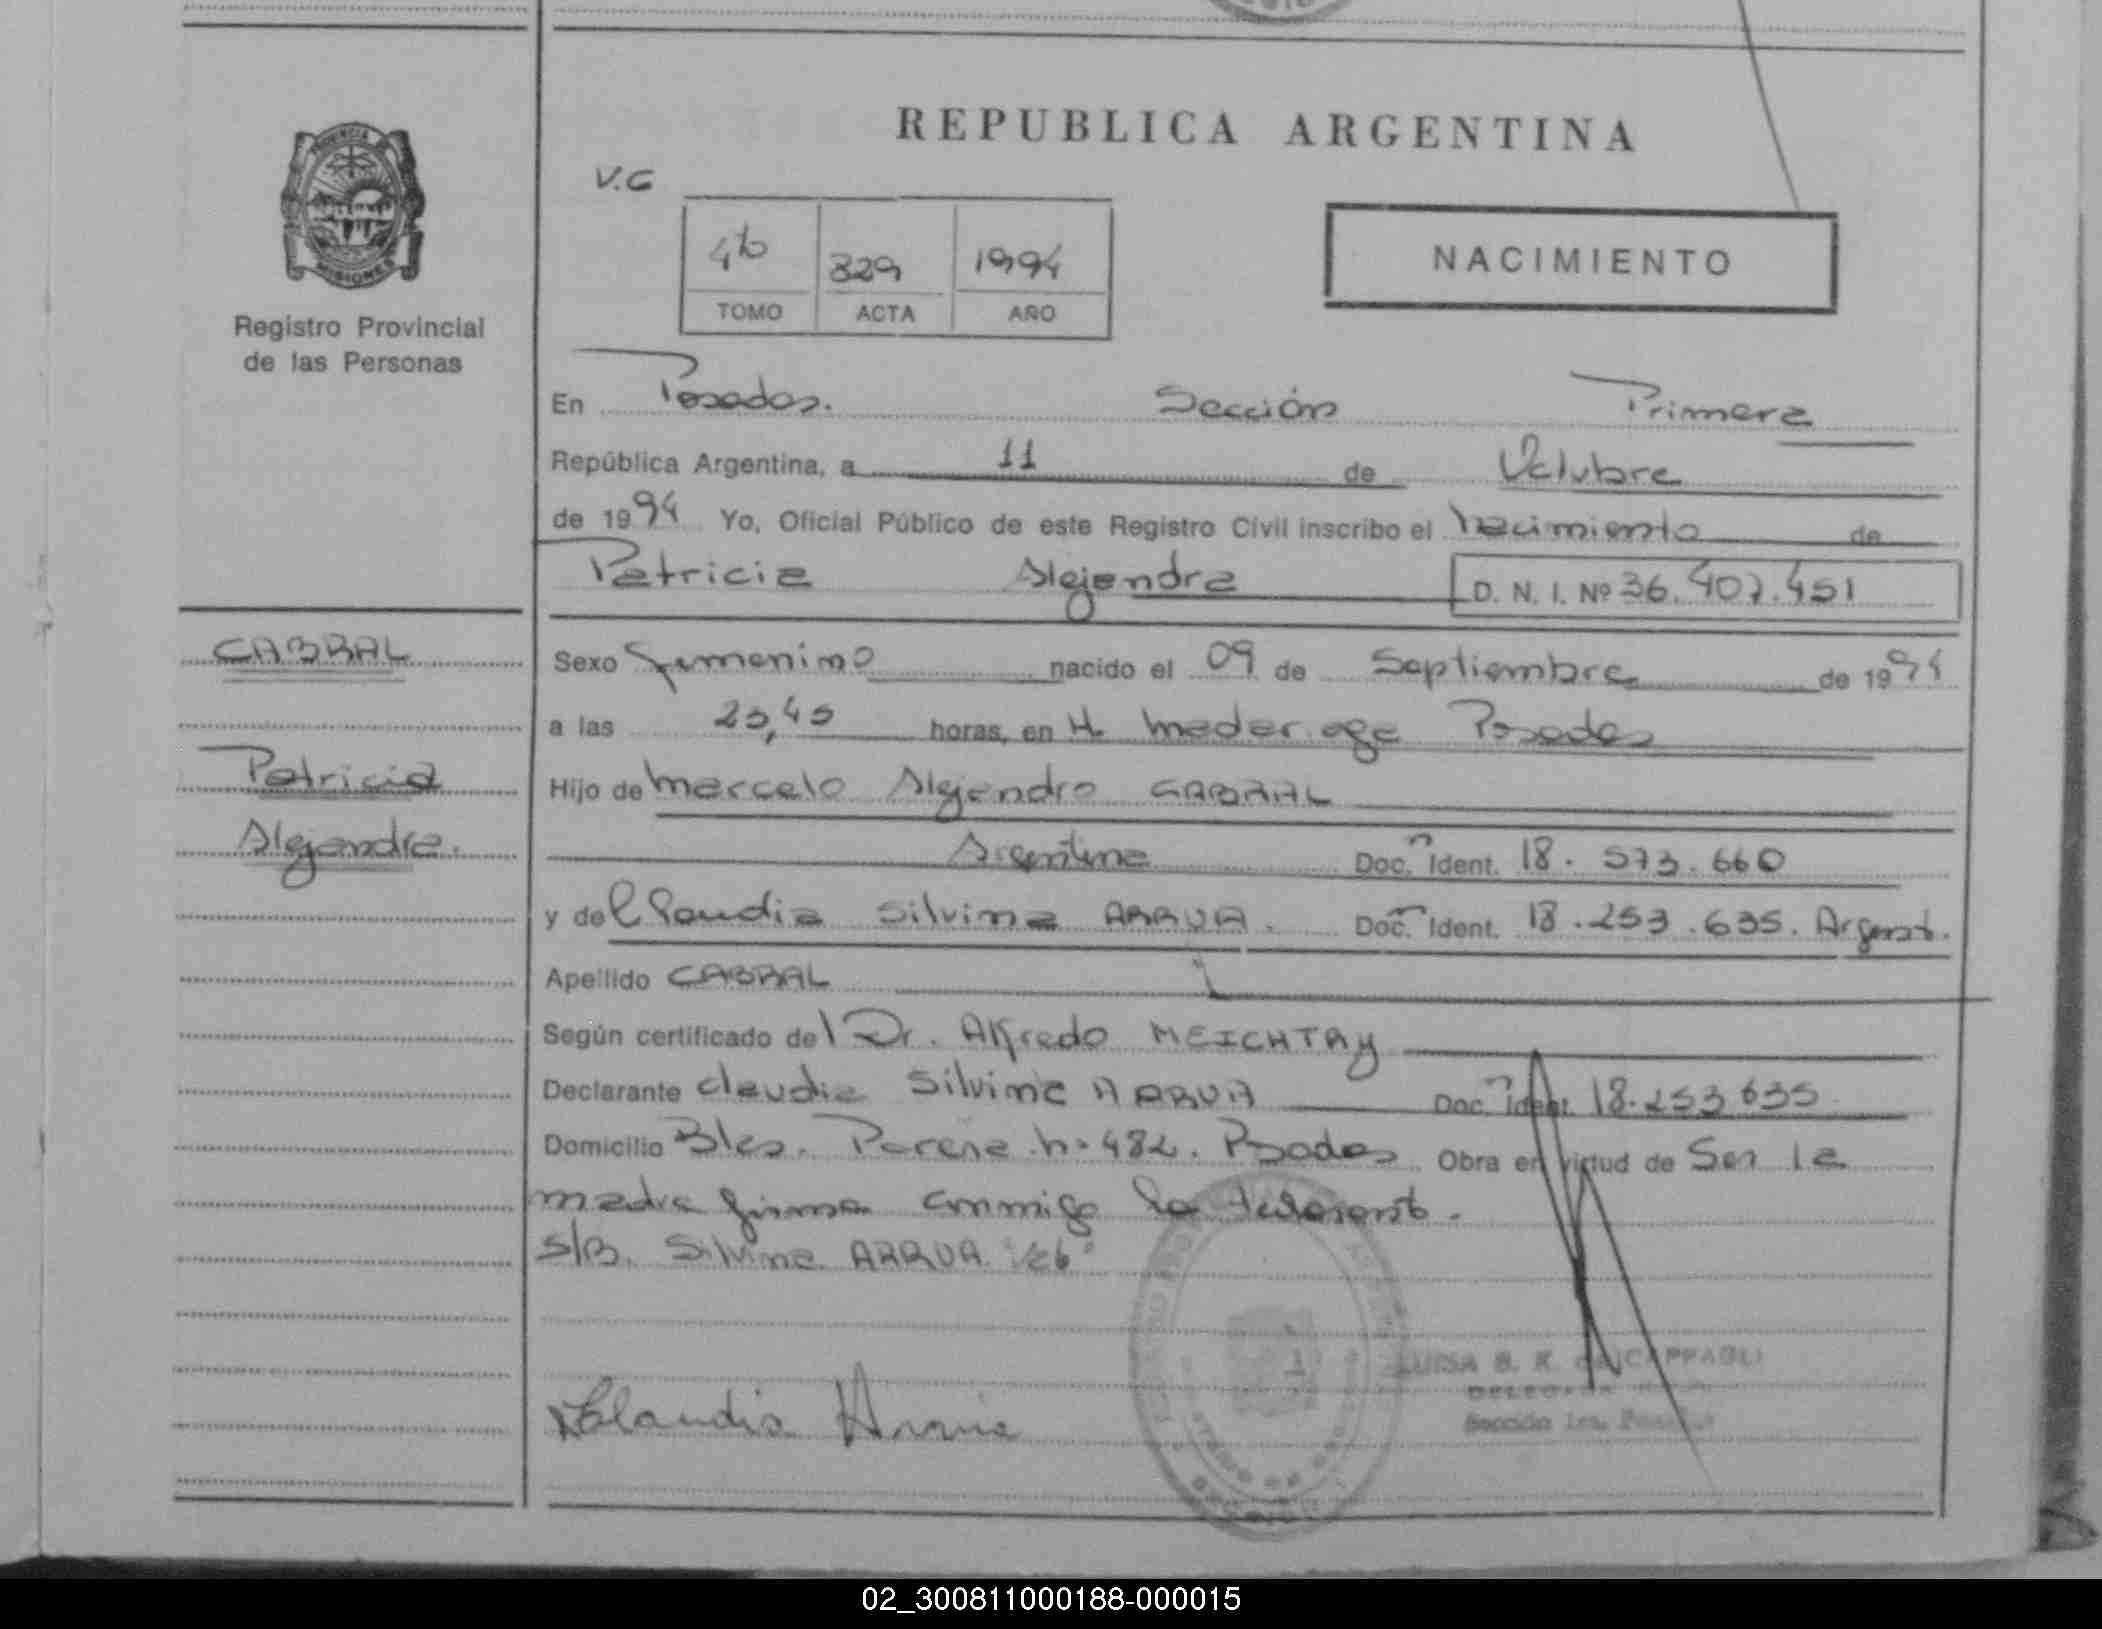 REPUBLICA ARGENTINA
V.G
4to 829 1994
TOMO ACTA AÑO
NACIMIENTO
PROVINCIA
MISIONES
Registro Provincial
de las Personas
CABRAL
Patricia
Alejandra.
En Posadas. Sección Primera
República Argentina, a 11 de Octubre
de 1994 Yo, Oficial Público de este Registro Civil inscribo el nacimiento de
Patricia Alejandra D. N. I. Nº 36.407.451
Sexo femenino nacido el 09 de Septiembre de 1994
a las 23,45 horas, en H. Posadas
Hijo de Marcelo Alejandro CABRAL
Argentina Doc. Ident. 18.573.660
y de Claudia Silvina ARRUA. Doc. Ident. 18.253.635. Argent.
Apellido CABRAL
Según certificado del Dr. Alfredo MEICHTRY
Declarante Claudia Silvina ARRUA Doc. Ident. 18.253635
Domicilio Bles. Parana n· 482. Posadas Obra en virtud de Ser la
madre firma conmigo la
S/B. Silvina ARRUA
Claudia Arrua
LUISA B. K. CAPPAGLI
DELEGADA
Sección 1ra. Posadas
02_300811000188-000015